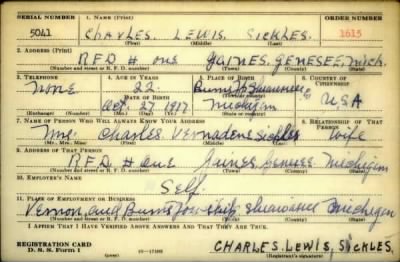 SERIAL NUMBER 1. NAME (Print) ORDER NUMBER
5041 CHARLES. LEWIS. SICKLES. 1615
(First) (Middle) (Last)
2. ADDRESS (Print)
RFD # one GAINES, GENESEE, Mich.
(Number and street or R. F. D. number) (Town) (County) (State)
3. TELEPHONE 4. AGE IN YEARS 5. PLACE OF BIRTH 6. COUNTRY OF CITIZENSHIP
none 22 Burns Tp Shiawassee
DATE OF BIRTH (Town or county)
Oct 27 1917 Michigan USA
(Exchange) (Number) (Mo.) (Day) (Yr.) (State or country)
7. NAME OF PERSON WHO WILL ALWAYS KNOW YOUR ADDRESS 8. RELATIONSHIP OF THAT PERSON
Mrs Charles Vernadene Sickles wife
(Mr., Mrs., Miss) (First) (Middle) (Last)
9. ADDRESS OF THAT PERSON
RFD # one Gaines Genesee Michigan
(Number and street or R. F. D. number) (Town) (County) (State)
10. EMPLOYER'S NAME
Self
11. PLACE OF EMPLOYMENT OR BUSINESS
Vernon and Burns Township Shiawassee Michigan
(Number and street or R. F. D. number) (Town) (County) (State)
I AFFIRM THAT I HAVE VERIFIED ABOVE ANSWERS AND THAT THEY ARE TRUE.
REGISTRATION CARD
D. S. S. Form 1 CHARLES. LEWIS. SICKLES.
(Registrant's signature)